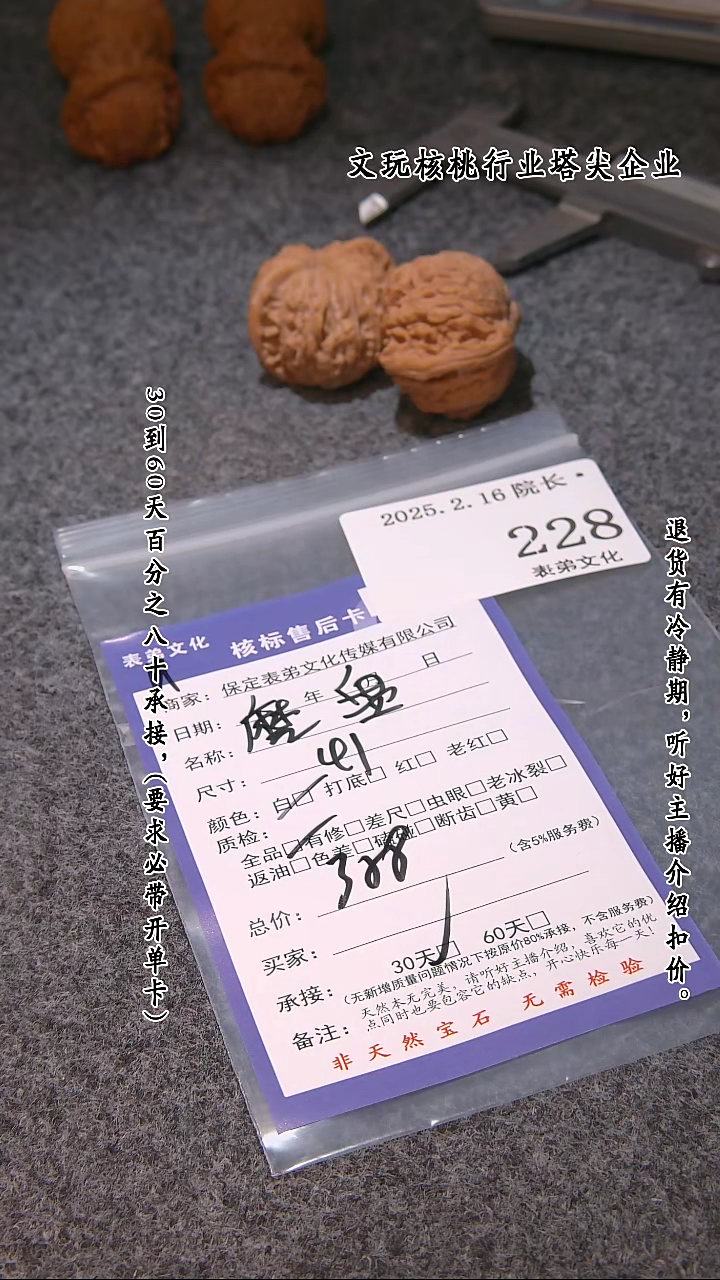 文玩核桃行业塔尖企业
30到60天百分之八十承接，（要求必带开单卡）
退货有冷静期，听好主播介绍扣价。
2025.2.16 院长·
228
表弟文化
表弟文化 核标售后卡
商家：保定表弟文化传媒有限公司
日期： 年 月 日
名称：磨盘
尺寸：41
颜色：白□ 打底□ 红□ 老红□
质检：
全品□有修□差尺□虫眼□老冰裂□
返油□色差□磕碰□断齿□黄□
总价：308 （含5%服务费）
买家：
承接：30天□ 60天□
（无新增质量问题情况下按原价80%承接，不含服务费）
备注：天然本无完美，请听好主播介绍，喜欢它的优
点同时也要包容它的缺点，开心快乐每一天！
非天然宝石 无需检验